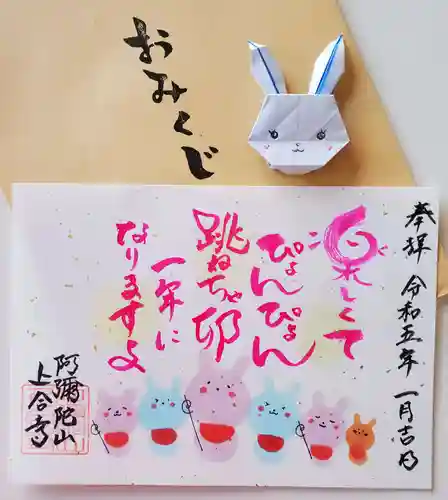 おみくじ
奉拝 令和五年 一月吉日
うれしくて
ぴょんぴょん
跳ねちゃ卯
一年に
なりますよ
阿彌陀山
上合寺